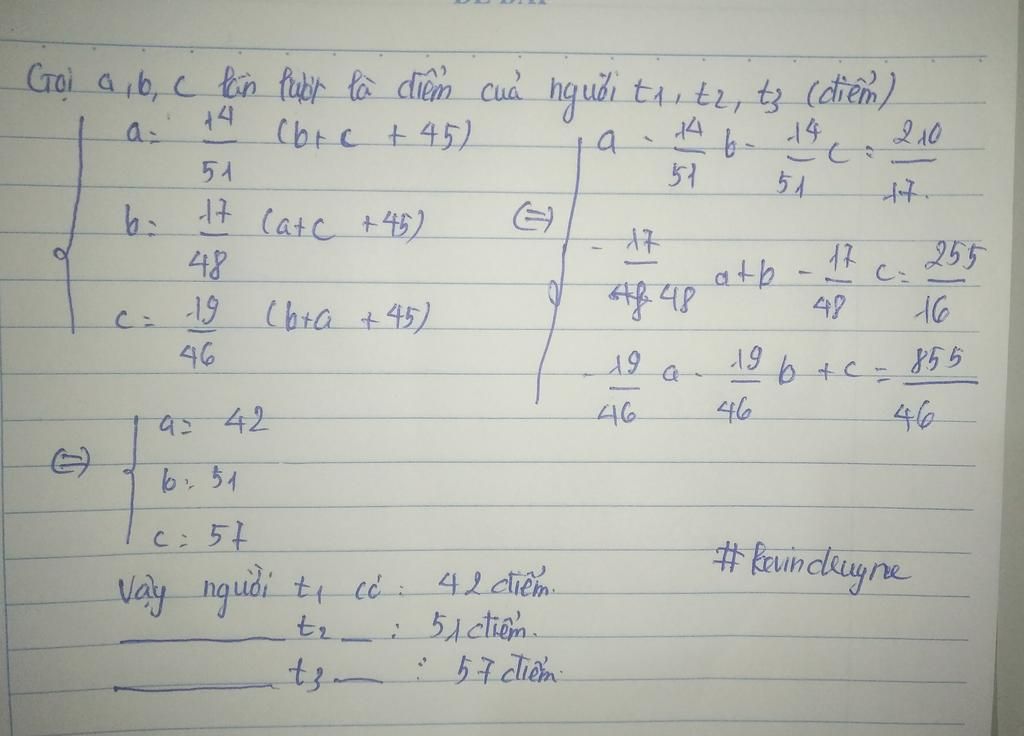 ĐỀ BÀI
Gọi a, b, c lần lượt là điểm của người t1, t2, t3 (điểm)
a = 14/51 (b+c + 45)
b = 17/48 (a+c + 45)
c = 19/46 (b+a + 45)
⇔
a - 14/51 b - 14/51 c = 210/17.
- 17/48 a + b - 17/48 c = 255/16
- 19/46 a - 19/46 b + c = 855/46
⇔ a = 42
b = 51
c = 57
#kevindeuyne
Vậy người t1 có : 42 điểm.
t2 : 51 điểm.
t3 : 57 điểm.